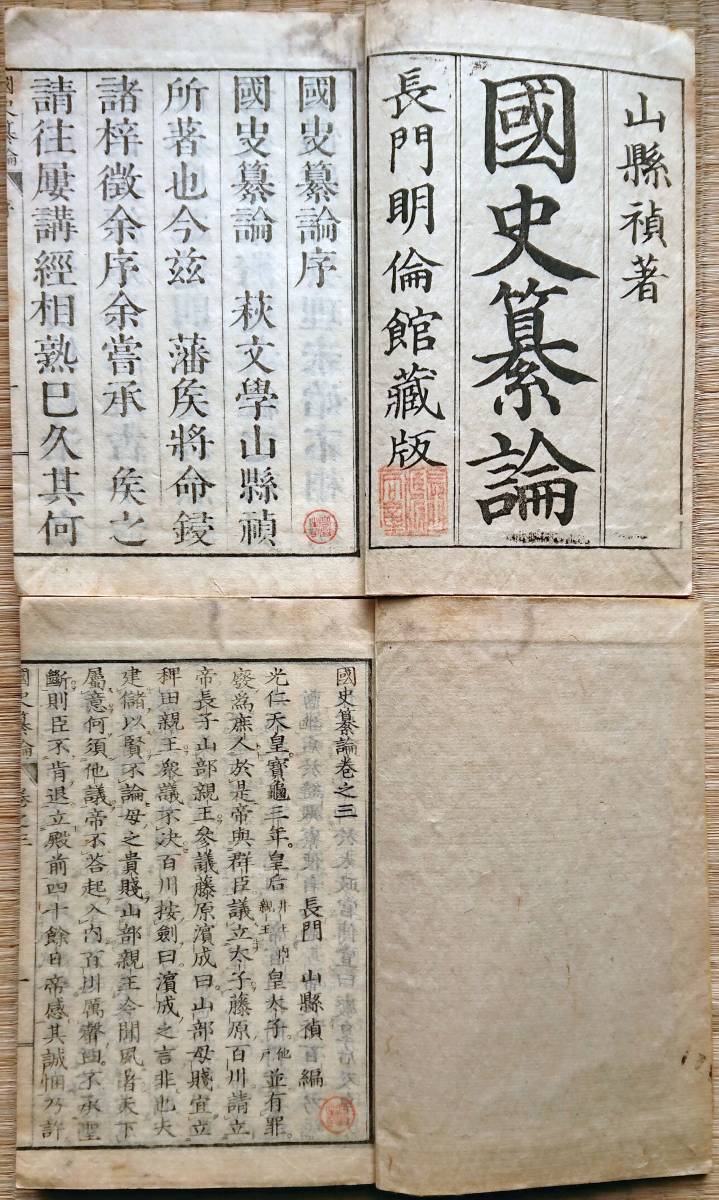 山縣禎著
國史纂論
長門明倫館藏版
國史纂論序
國史纂論 萩文學山縣禎
所著也今玆 藩矦將命鋟
諸梓徵余序余嘗承 矦之
請往屢講經相熟已久其何
國史纂論
國史纂論卷之三
長門 山縣禎編
光仁天皇寶龜三年皇后井上內親王皇太子他戶並有罪
廢爲庶人於是帝與群臣議立太子藤原百川請立
帝長子山部親王參議藤原濱成曰山部母賤宜立
稗田親王衆議不决百川按劍曰濱成之言非也夫
建儲以賢不論母之貴賤山部親王令聞夙著天下
屬意何須他議帝不荅起入內百川厲聲曰不承聖
斷則臣不肯退立殿前四十餘日帝感其誠悃乃許
國史纂論 卷之三 一